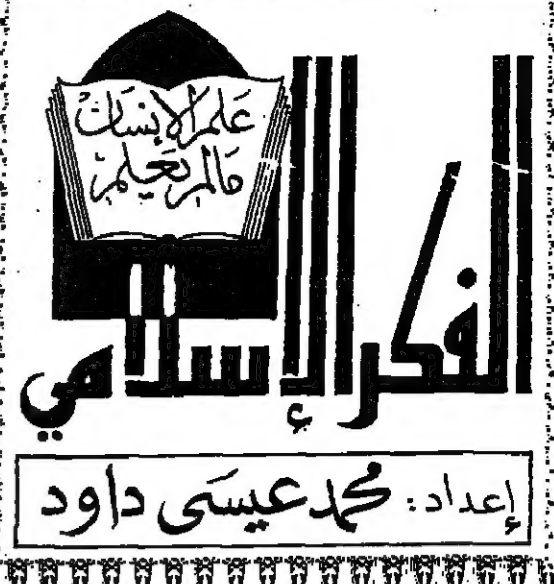 عَلم الإنسان
مالم يعلم
الفكر الإسلامي
إعداد: محمد عيسَى داود